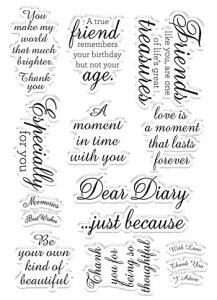 You
make my
world
that much
brighter.
Thank
you
A true
friend
remembers
your birthday
but not your
age.
Friends
like you, are one
of life's great
treasures
Especially
for you
A
moment
in time
with you
love is
a moment
that lasts
forever
Memories
Best Wishes
Dear Diary
...just because
Be
your own
kind of
beautiful
Thank
you for
being so
thoughtful
With Love
Thank You
I Adore